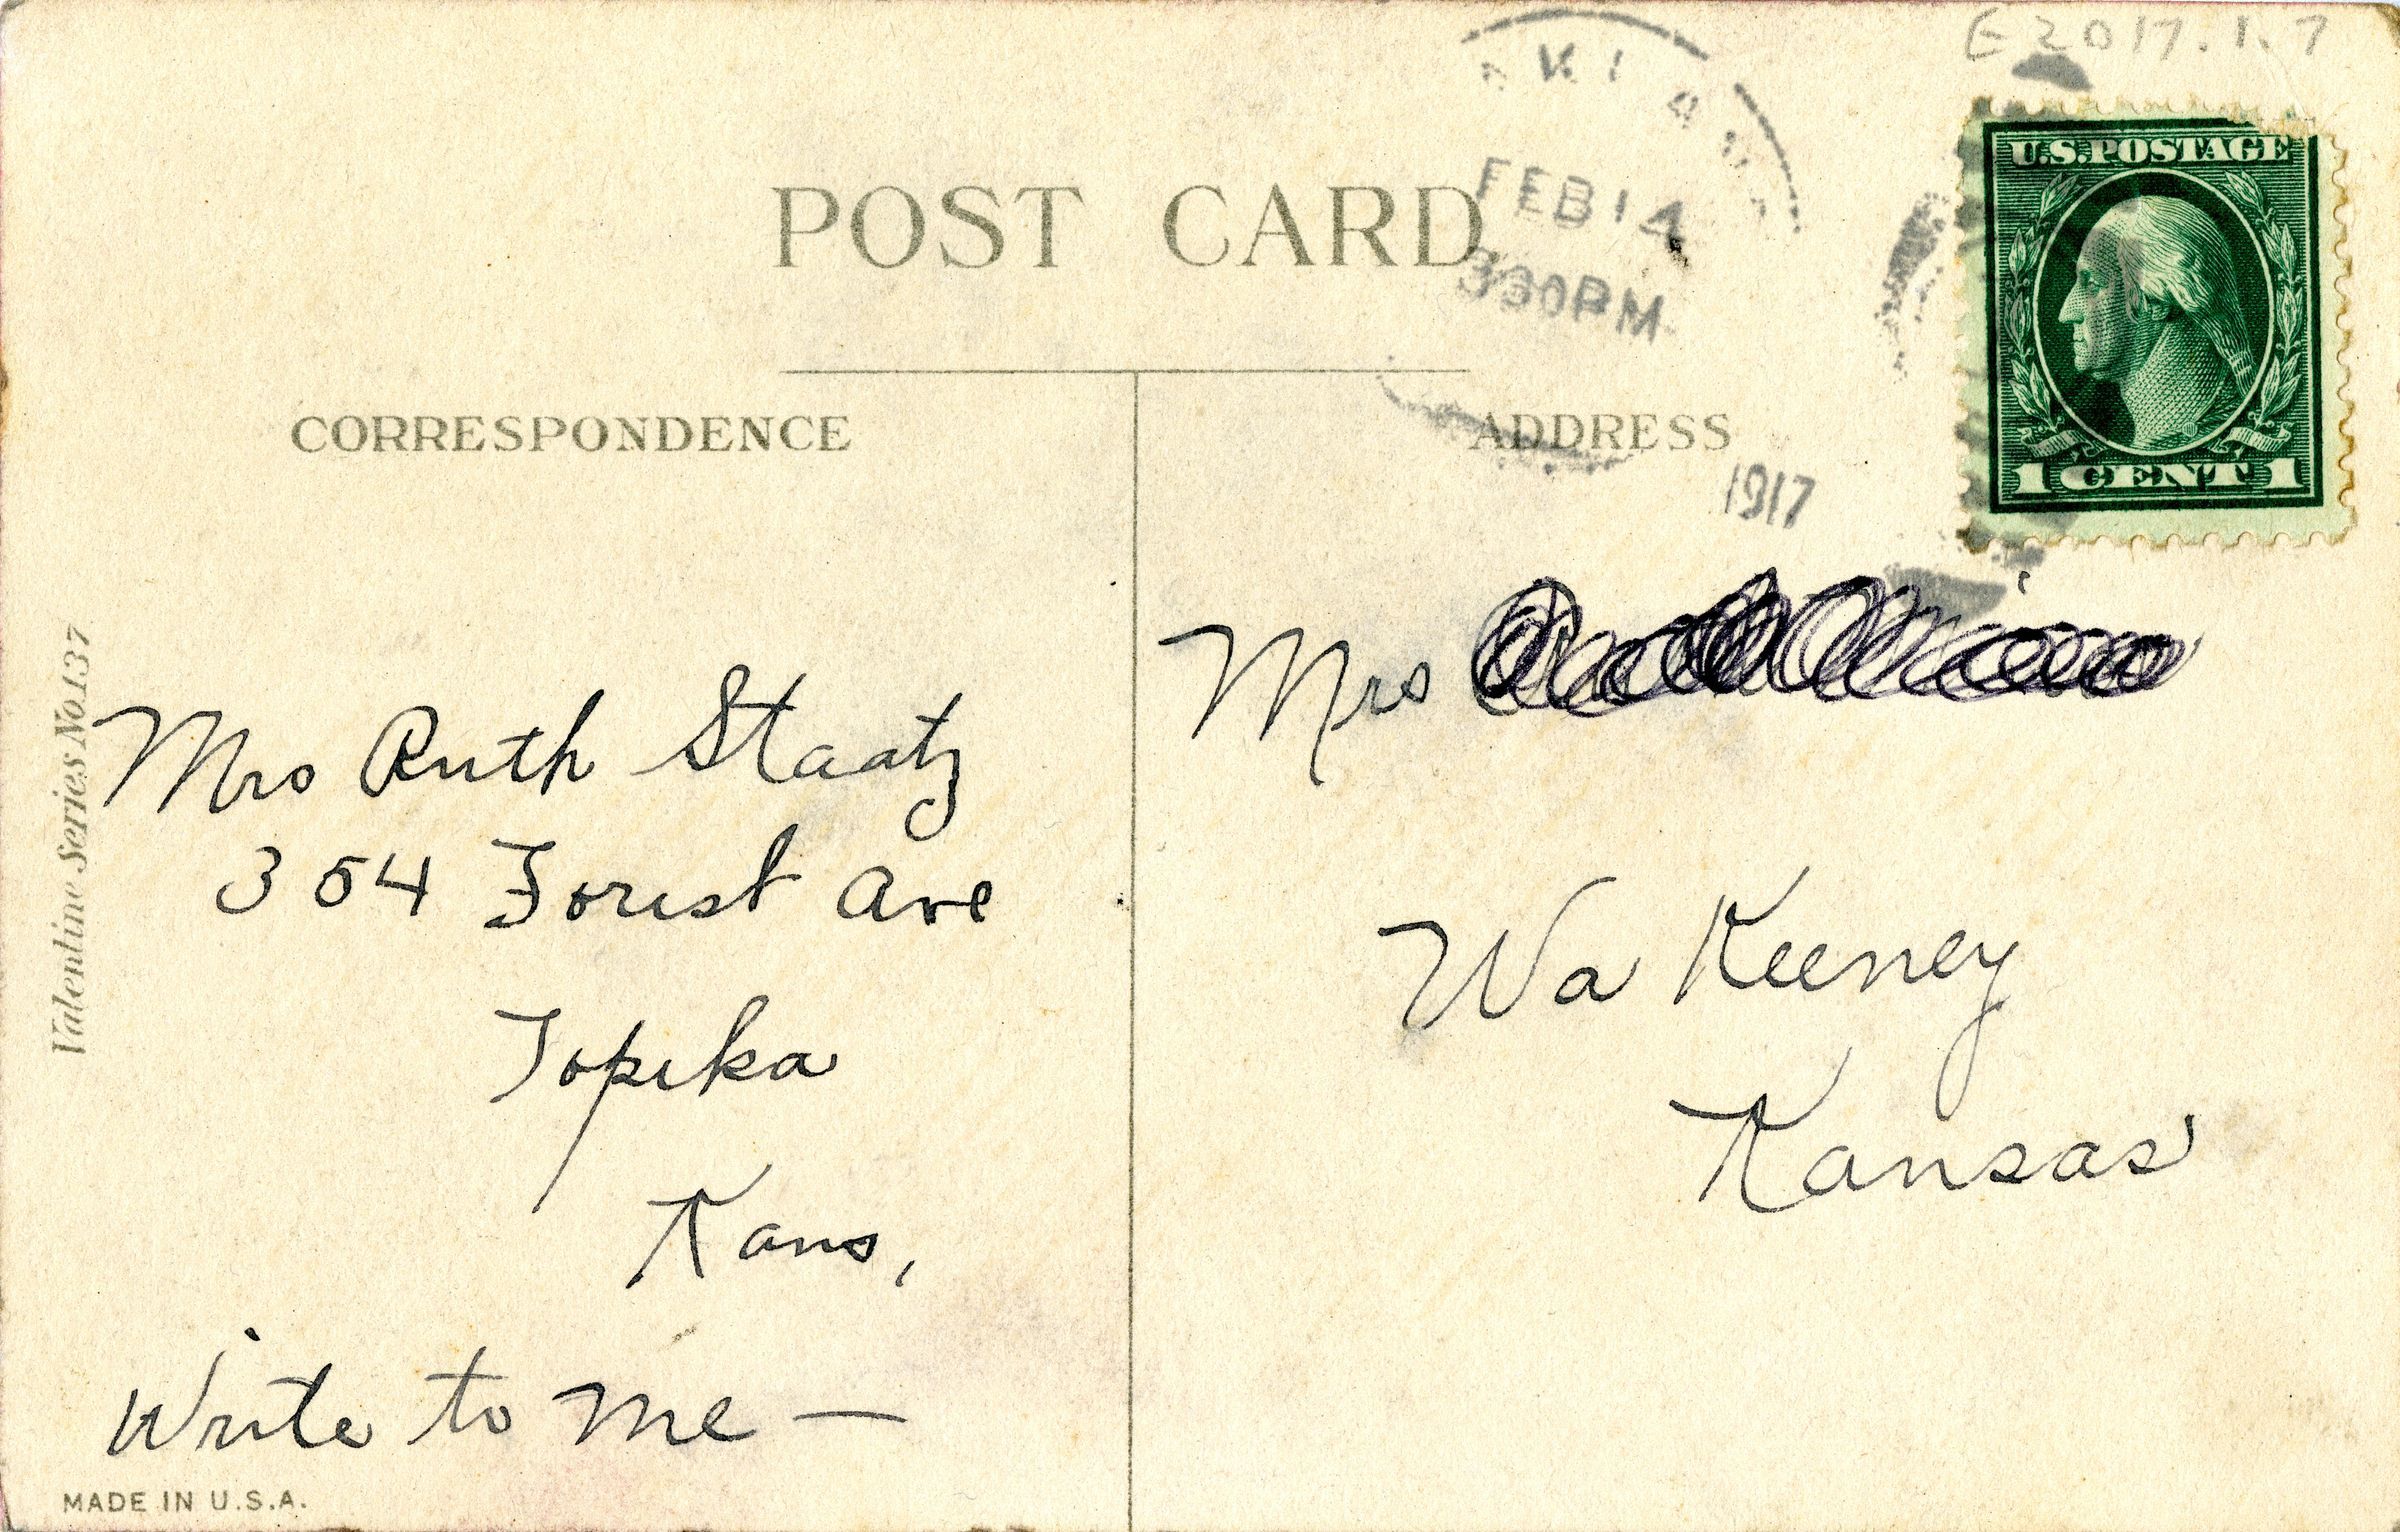 E2017.1.7
FEB 14
330PM
1917
U.S. POSTAGE
1 CENT 1
POST CARD
CORRESPONDENCE
ADDRESS
Valentine Series No. 137
Mrs Ruth Staatz
354 Forest Ave
Topeka
Kans,
Write to me —
MADE IN U.S.A.
Mrs
Wa Keeney
Kansas